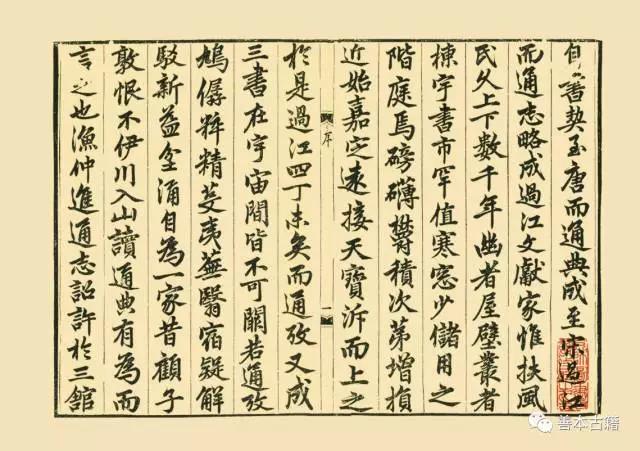 自書契至唐而通典成至宋過江
而通志略成過江文獻家惟扶風
氏久上下数千年幽者屋壁叢者
棟宇書市罕值寒窓少儲用之
階庭焉磅礴欝積次第增損
近始嘉定遠接天寶泝而上之
序
一
於是過江四丁未矣而通攷又成
三書在宇宙間皆不可闕若通攷
鳩僝粹精芟夷蕪翳宿疑解
駁新益坌涌自為一家昔顧子
敦恨不伊川入山讀通典有為而
言之也漁仲進通志詔許於三館
善本古籍